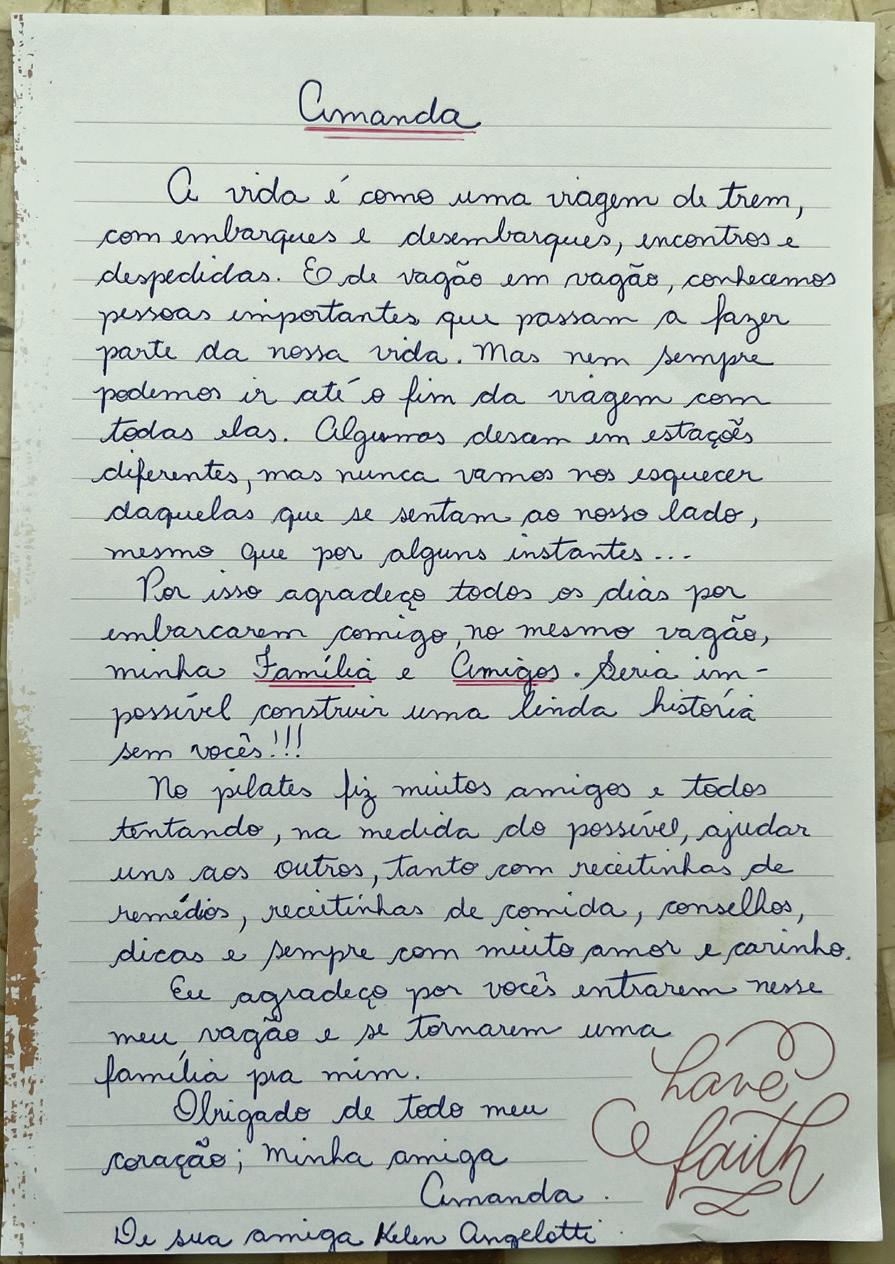 Amanda
A vida é como uma viagem de trem,
com embarques e desembarques, encontros e
despedidas. E de vagão em vagão, conhecemos
pessoas importantes que passam a fazer
parte da nossa vida. Mas nem sempre
podemos ir até o fim da viagem com
todas elas. Algumas desam em estações
diferentes, mas nunca vamos nos esquecer
daquelas que se sentam ao nosso lado,
mesmo que por alguns instantes...
Por isso agradeço todos os dias por
embarcarem comigo, no mesmo vagão,
minha Família e Amigos. Seria im-
possível construir uma linda história
sem vocês!!!
No pilates fiz muitos amigos e todos
tentando, na medida do possível, ajudar
uns aos outros, tanto com receitinhas de
remédios, receitinhas de comida, conselhos,
dicas e sempre com muito amor e carinho.
Eu agradeço por vocês entrarem nesse
meu vagão e se tornarem uma
família pra mim.
Obrigado de todo meu
coração; minha amiga
Amanda.
De sua amiga Kelen Angelotti
have
faith